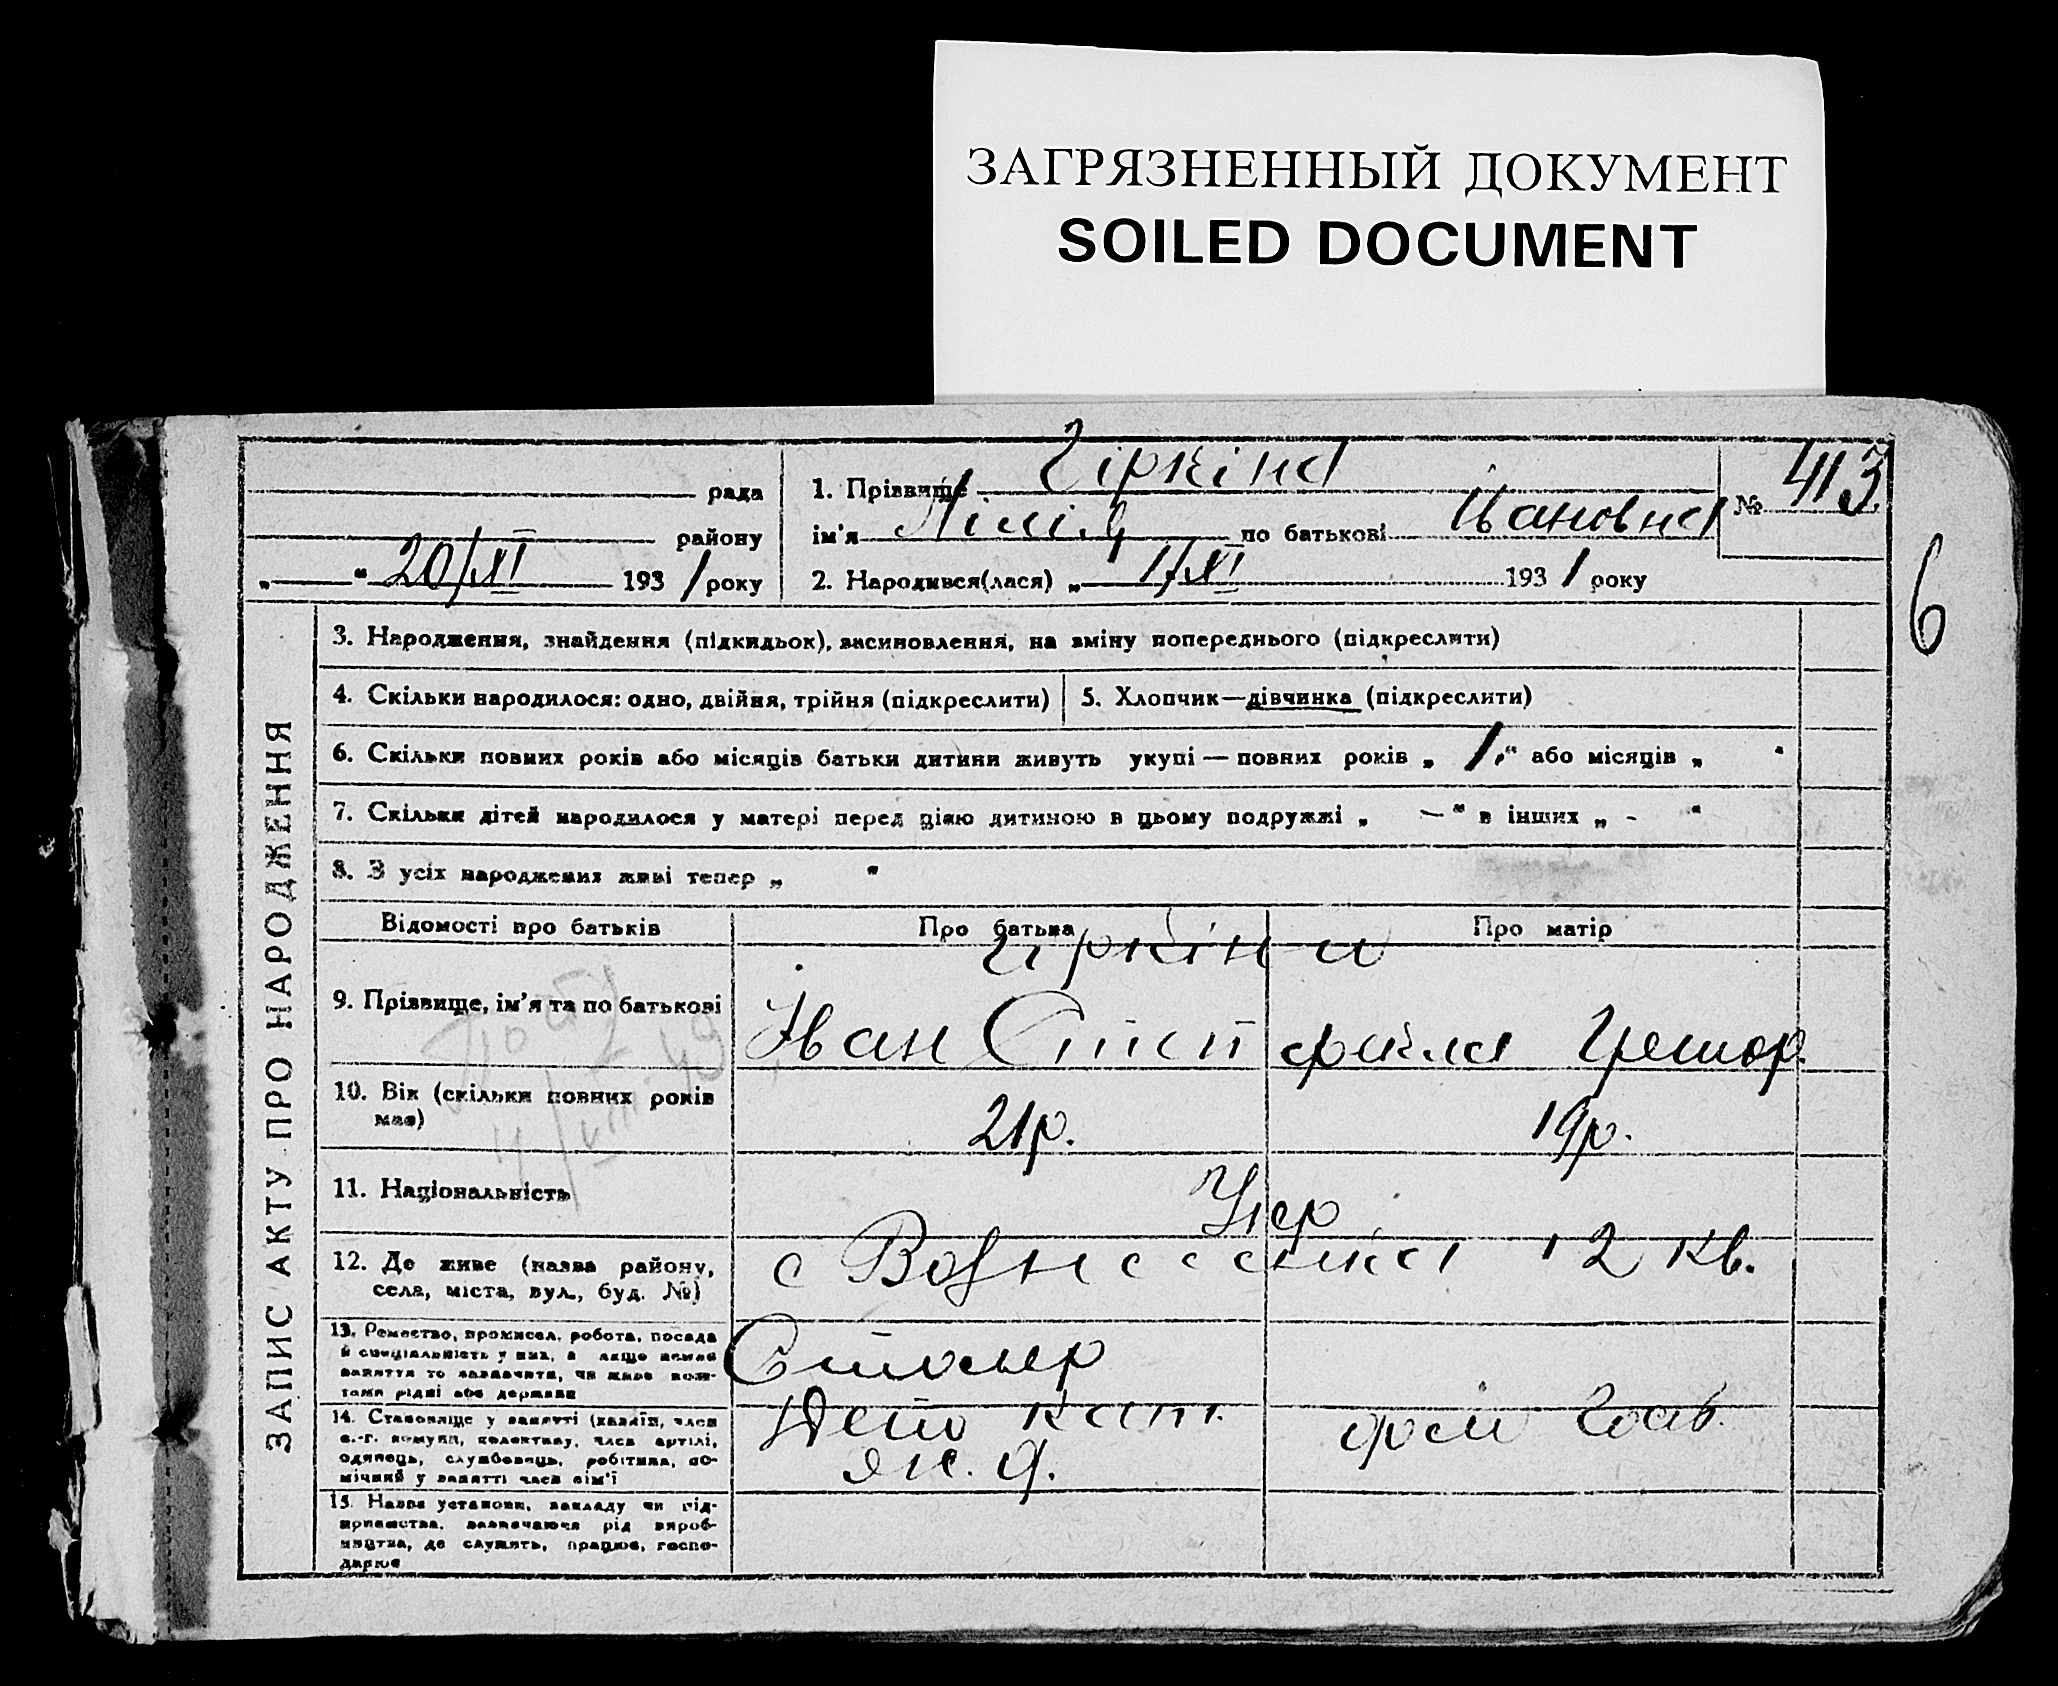 ЗАГРЯЗНЕННЫЙ ДОКУМЕНТ
SOILED DOCUMENT
рада
району
„ “ 20/XI 1931 року
1. Прізвище Чіркіна
№ 413
ім'я Лілія по батькові Івановна
2. Народився(лася) „ 17/XI 1931 року
6
ЗАПИС АКТУ ПРО НАРОДЖЕННЯ
3. Народження, знайдення (підкидьок), всиновлення, на зміну попереднього (підкреслити)
4. Скільки народилося: одно, двійня, трійня (підкреслити)
5. Хлопчик—дівчинка (підкреслити)
6. Скільки повних років або місяців батьки дитини живуть укупі — повних років „ 1 “ або місяців „ “
7. Скільки дітей народилося у матері перед цією дитиною в цьому подружжі „ — “ в інших „ - “
8. З усіх народжених живі тепер „ “
Відомості про батьків
Про батька
Про матір
Чіркіни
9. Прізвище, ім'я та по батькові
Іван Степ
Фекла Грешор.
10. Вік (скільки повних років має)
21р.
19р.
11. Національність
Укр
12. Де живе (назва району, села, міста, вул., буд. №)
с Вознесенка 12 кв.
13. Ремество, промисел, робота, посада й спеціальність у них, а якщо немає заняття то зазначити, чи живе коштами рідні або держави
Столяр
14. Становище у занятті (хазяїн, член с.-г. комуни, колективу, член артілі, одинець, службовець, робітник, помічний у занятті член сім'ї
Депо кат.
ж. д.
15. Назва установи, закладу чи підприємства, зазначаючи рід виробництва, де служить, працює, господарює